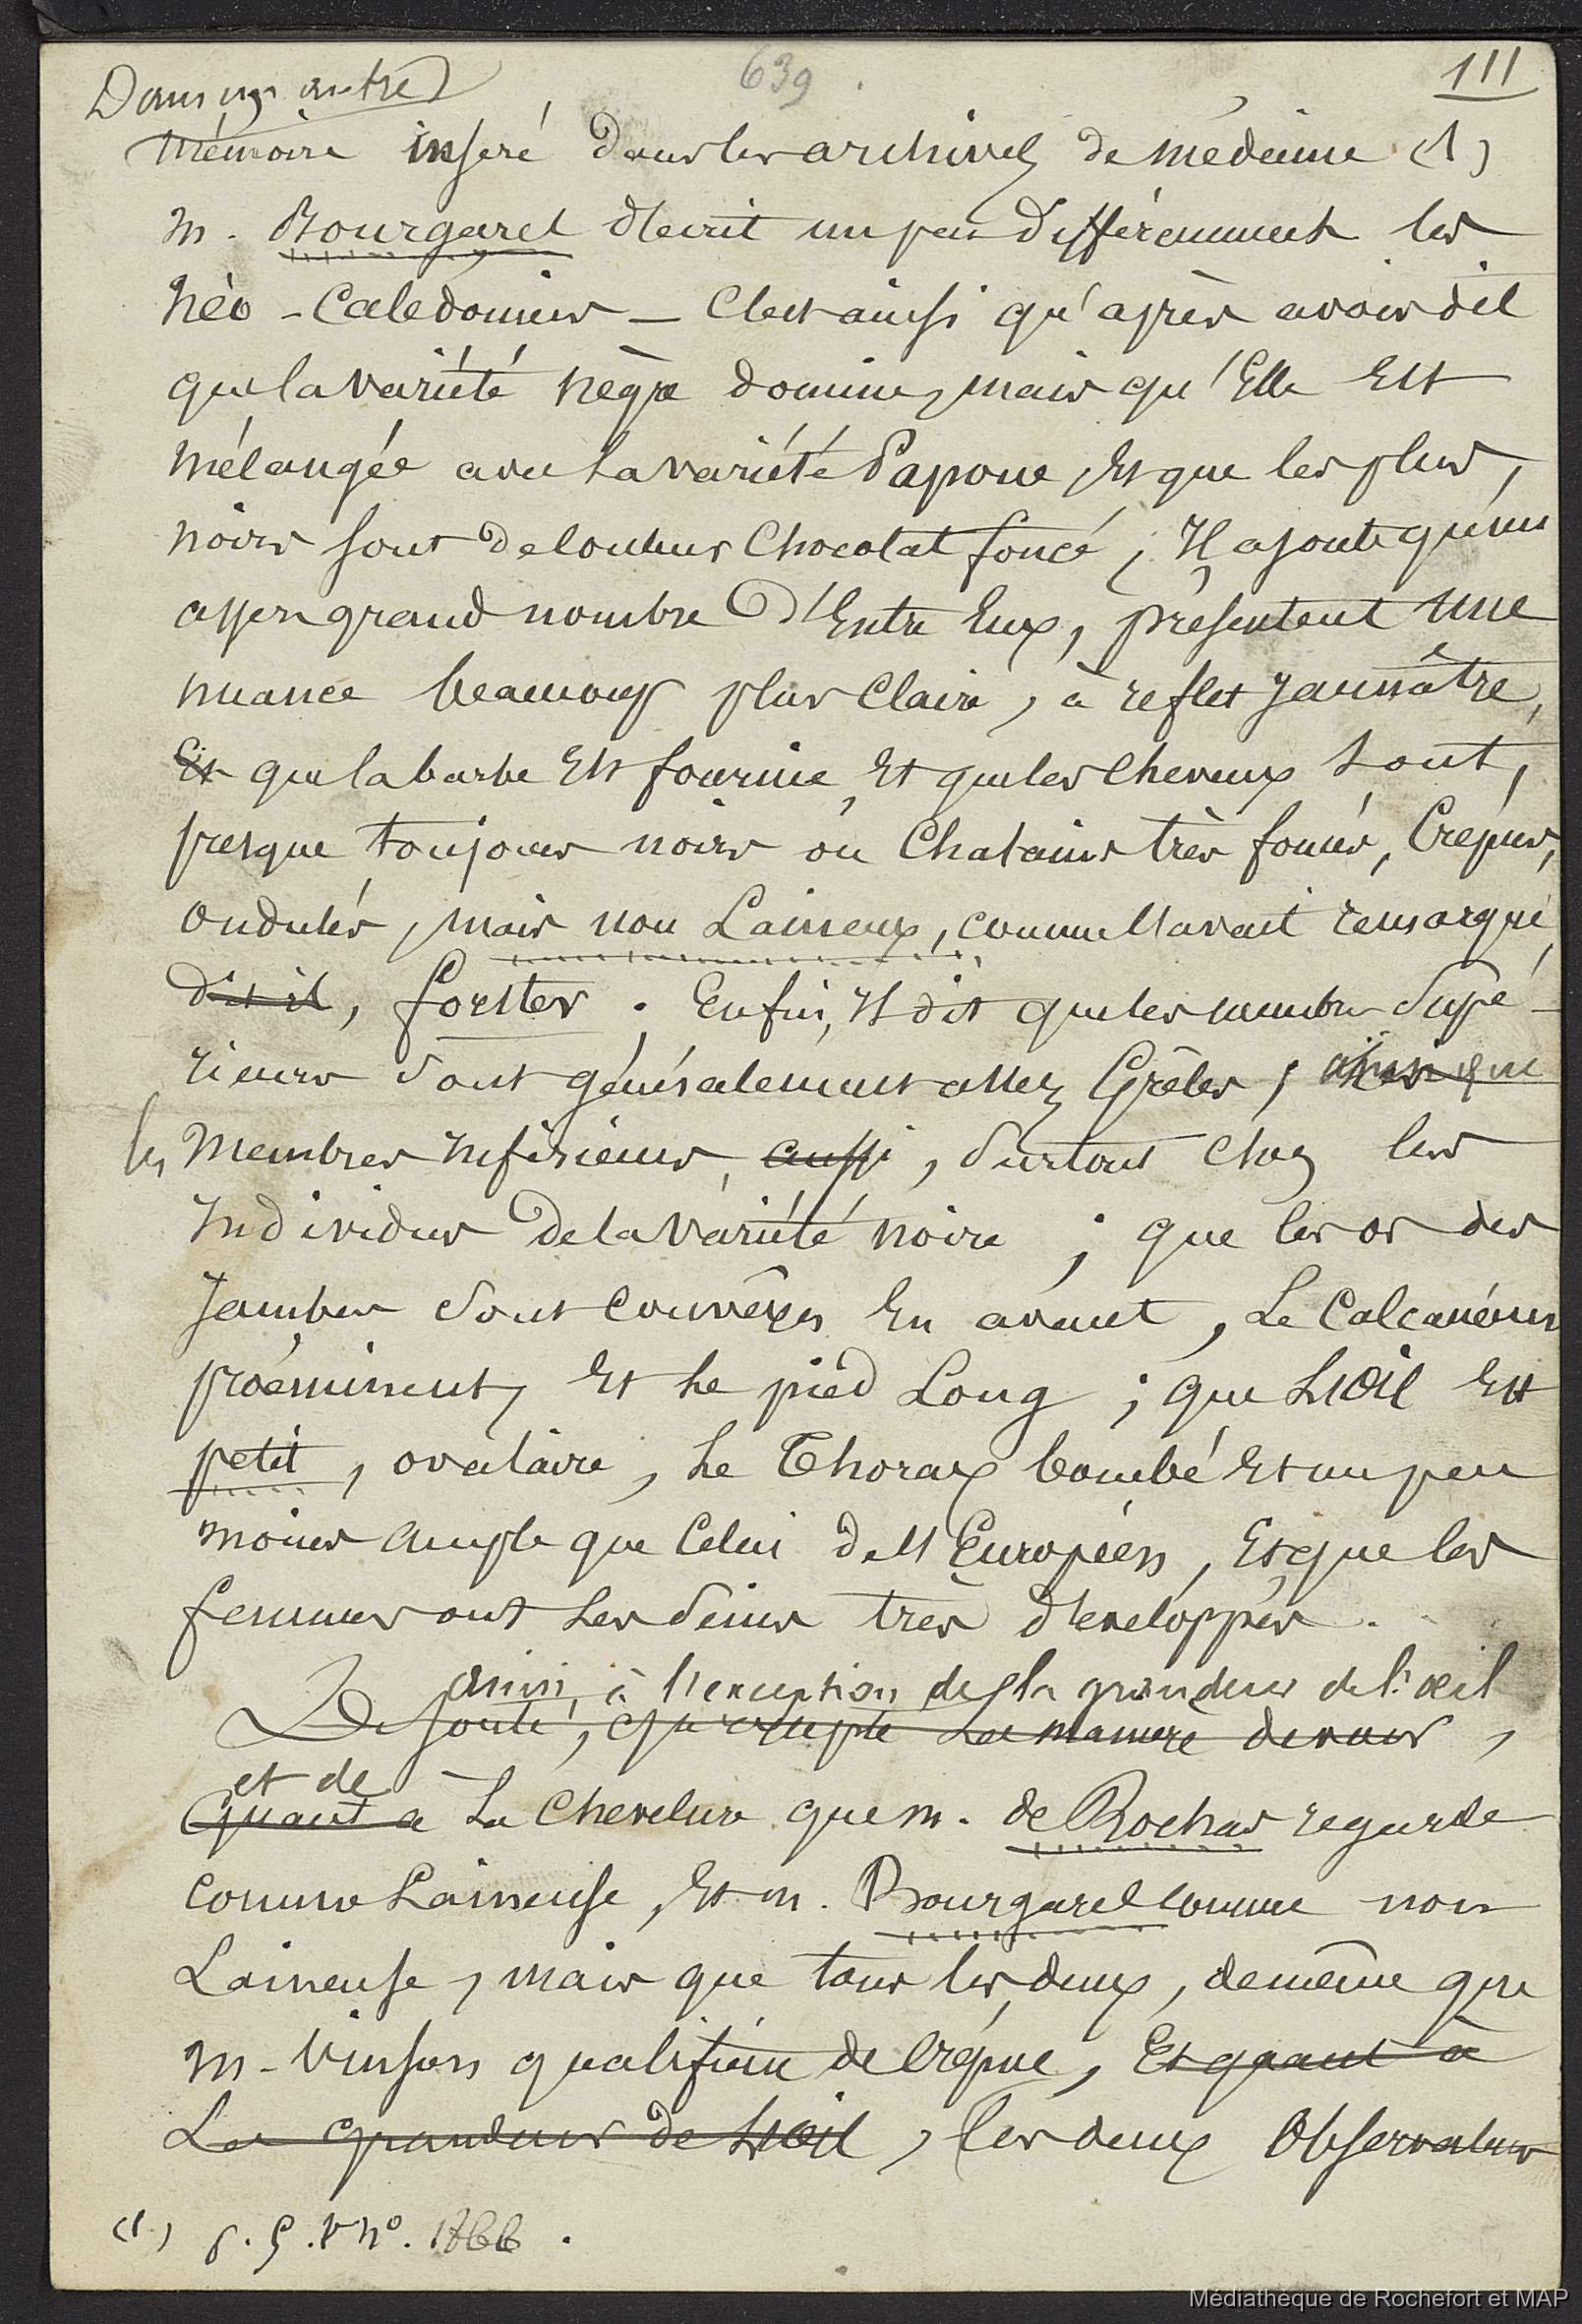 639
111
Dans un autre
Mémoire inseré dans les archives de médecine (1)
M. Bourgarel décrit un peu différemment les
Néo-Calédoniens — C'est ainsi qu'après avoir dit
que la variété nègre domine, mais qu'Elle Est
Mélangée avec la variété Papoue, Et que les plus,
noirs sont de couleur Chocolat foncé ; Il ajoute qu'un
assez grand nombre d'Entre Eux, présentent une
nuance beaucoup plus Claire, à reflet jaunâtre,
Et que la barbe Est fournie, Et que les Cheveux sont,
presque toujours noirs ou Chatains très foncés, Crépus,
ondulés, mais non Laineux, comme l'avait remarqué,
dit il, forster. Enfin, Il dit que les membres Supé-
rieurs sont généralement assez Grêles ; ainsi que
les Membres Inférieurs, aussi, surtout chez les
Individus de la variété noire ; que les os des
Jambes sont convexes En avant, Le Calcanéum
proéminent, Et le pied Long ; que L'Oeil Est
petit, ovalaire, Le Thorax bombé Et un peu
moins ample que Celui de l'Européen, Et que les
femmes ont les seins très dévelóppés.
ainsi, à l'exception de la grandeur de l'oeil
De sorte, qu'excepté La maniere de voir,
et de
Quant a La Chevelure que M. de Rochas regarde
comme Laineuse, Et M. Bourgarel comme non
Laineuse, mais que tous les deux, de même que
M. Vinson qualifient de Crépue, Et quant à
La grandeur de L'Oeil, les deux Observateurs
(1) n°. 1866.
Médiathèque de Rochefort et MAP